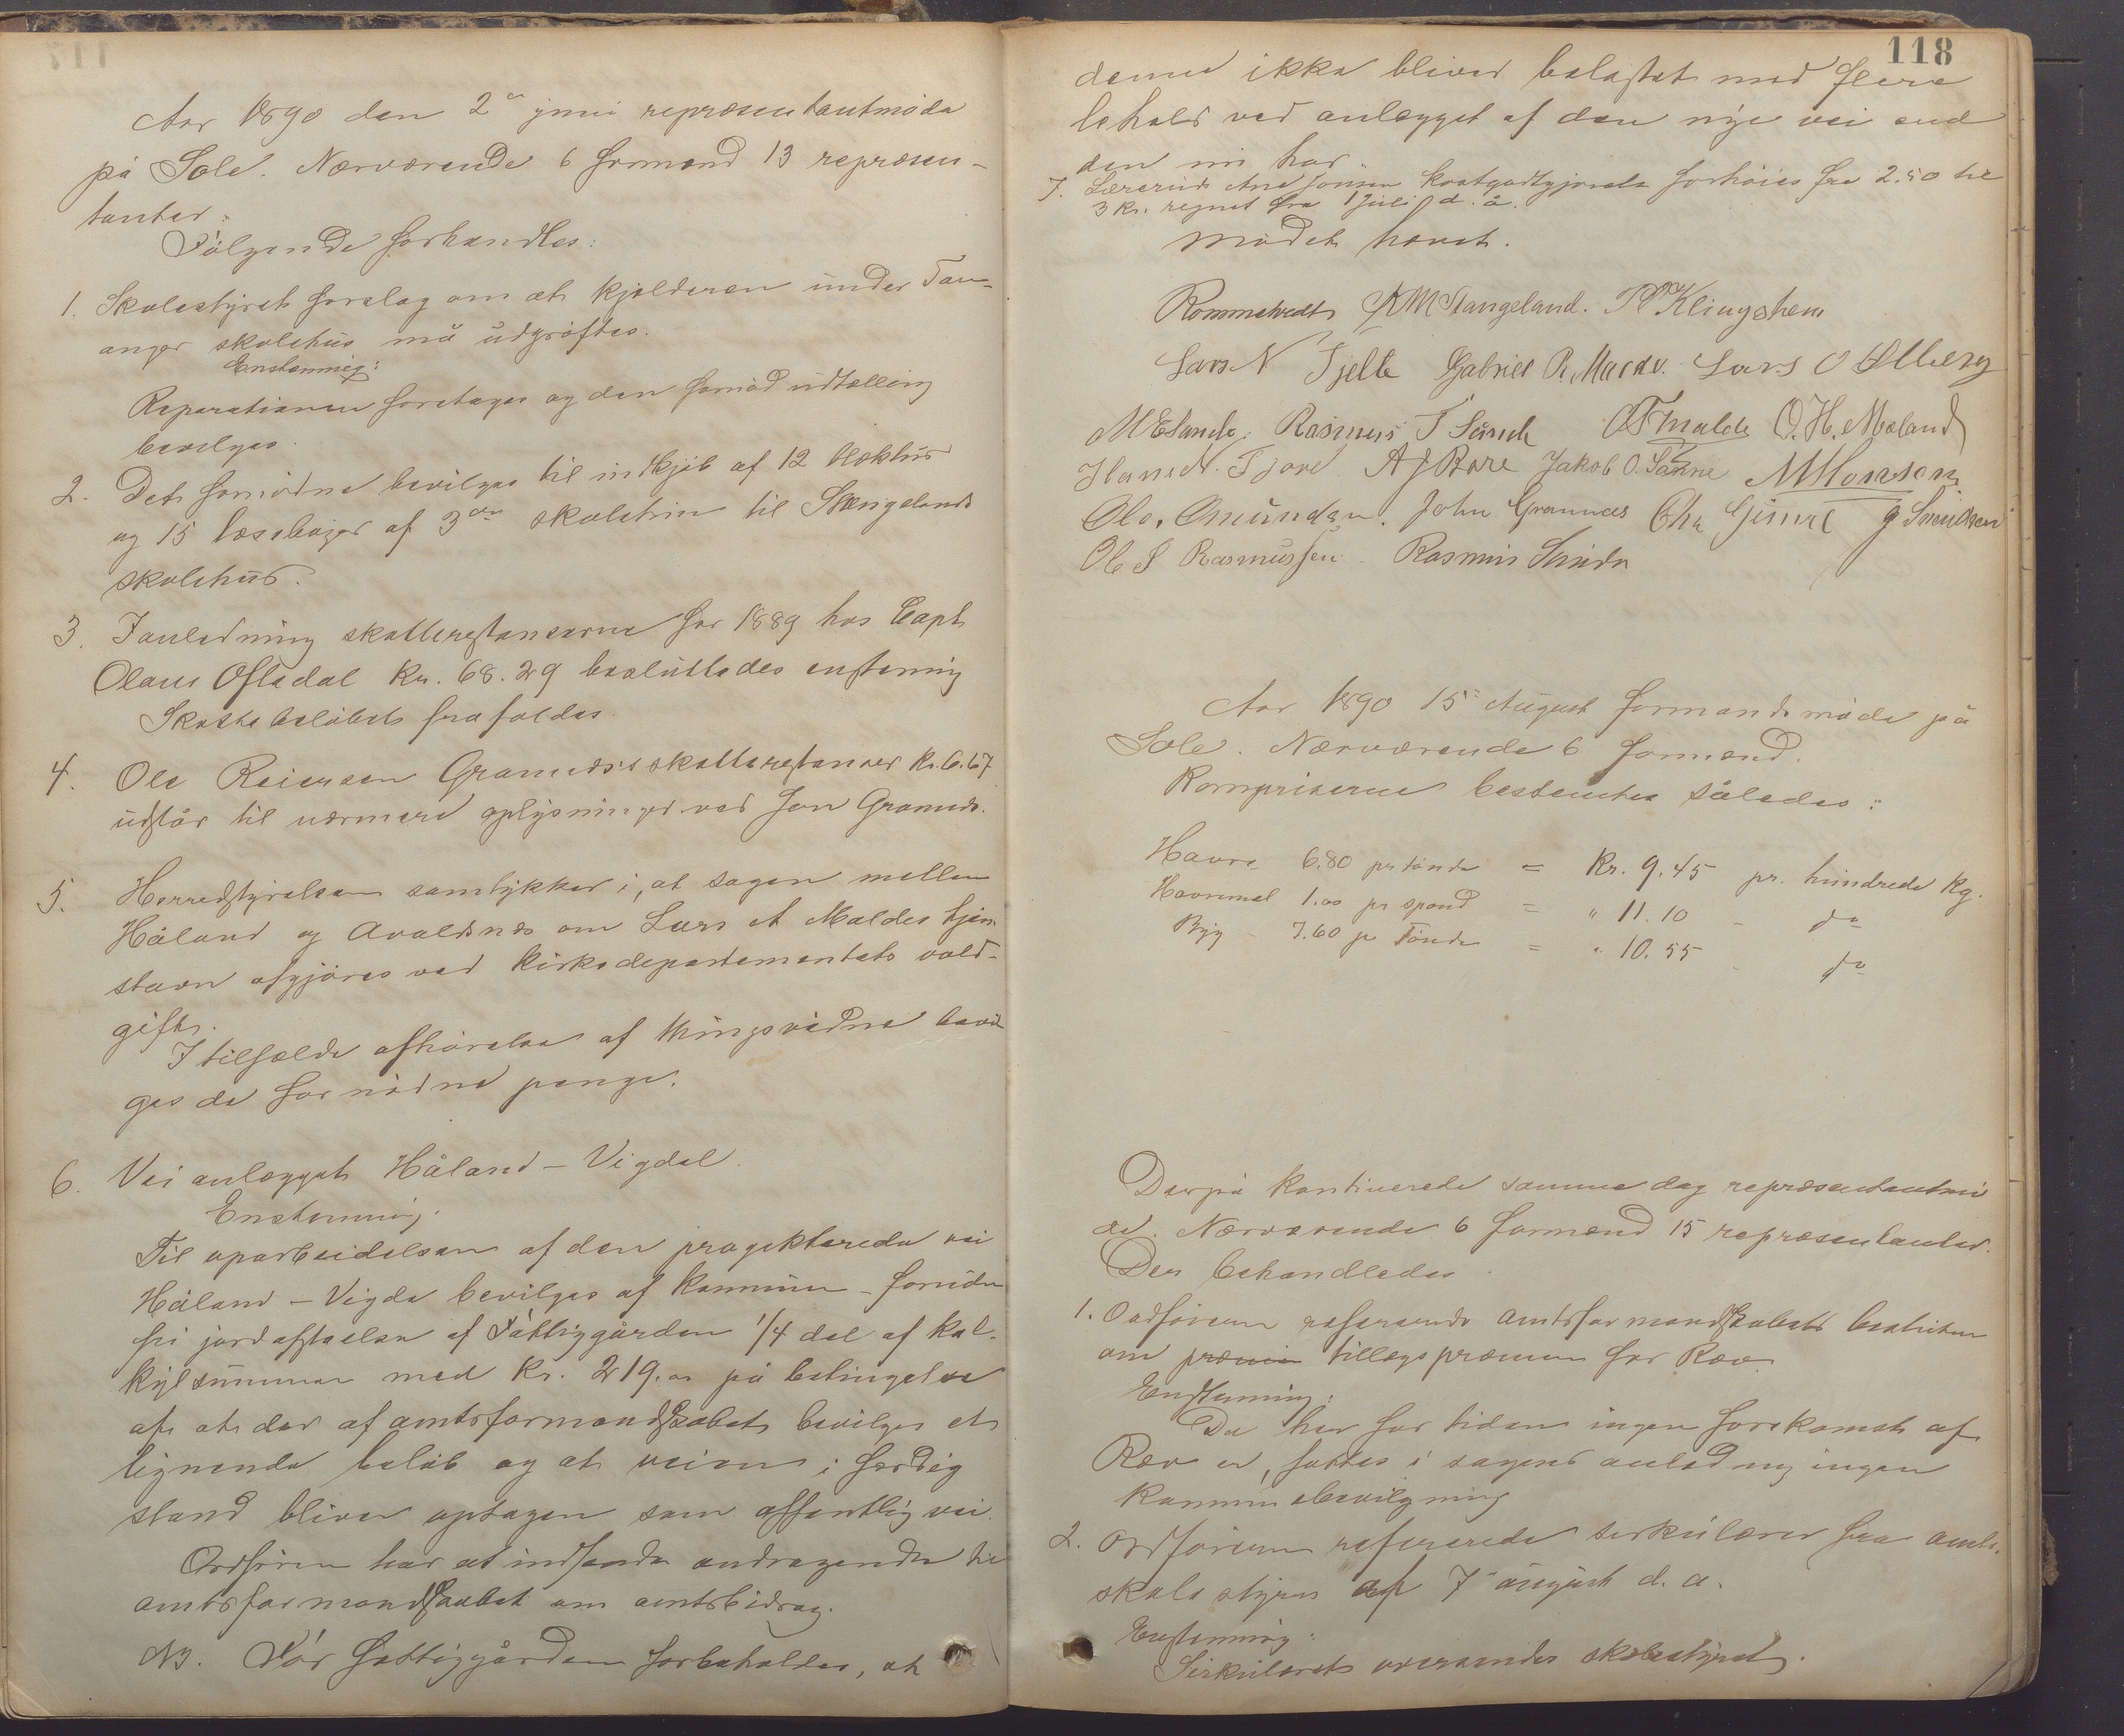 Aar 1890 den 2den juni repræsentantmøde
på Sole. Nærværende 6 formænd 13 repræsen-
tanter.
Følgende forhandles:
1. Skolestyret forslag om at kjelderen under Tan-
anger skolehus må udgrøftes.
Enstemmig:
Reparationen foretages og den fornød udtælling
bevilges.
2. Det fornødne bevilges til indkjøb af 12 blækhus
og 15 læsebøger af 3die skoletrin til Stangelands
skolehus.
3. I anledning skatterestanserne for 1889 hos Capt
Olaus Ofsedal Kr. 68.29 besluttedes enstemig
Skattebeløbet frafaldes.
4. Ole Reiersen Grannes's skatterestanser Kr. 6.67
udstår til nærmere oplysninger ved Jon Grannes.
5. Herredstyrelsen samtykker i, at sagen mellem
Håland og Avaldsnes om Lars A Maldes hjem
stavn afgjøres ved Kirkedepartementets vold-
gift.
I tilfælde afhørelse af thingsvidne bevil
ges de fornødne penge.
6. Veianlægget Håland – Vigdal.
Enstemmig.
Til oparbeidelsen af den projekterede vei
Håland – Vigda bevilges af Kommunen – foruden
fri jordafstaelse af Fattiggården 1/4 del af kal-
kylsummen med Kr. 219.00 på betingelse
af at der af amtsformandskabet bevilges et
lignende beløb og at veien i færdig
stand bliver optagen som offentlig vei.
Ordføren har at indsende andragende til
amtsformandskabet om amtsbidrag.
NB. For fattiggården forbeholdes, at
118
denne ikke bliver belastet med flere
lehold ved anlægget af den nye vei end
den nu har.
7. Lærerinde Ane Jonsen kostgodtgjørelse forhøies fra 2.50 til
3 Kr. regnet fra 1 Juli d. å.
Mødet hævet.
Rommetvedt KM Stangeland. P Klingshem
Lars N Tjelte Gabriel R. Lars O Ølberg
M E Sande. Rasmus T Sunde O T Malde O. H. Meland
Hans N. Tjore A J Bore Jakob O. Sømme M Monsen
Ole Omundsen. John Grannes Chr Gimre G Svendsen
Ole S Rasmussen. Rasmus Sunde
Aar 1890 15de August formandsmøde på
Sole. Nærværende 6 formænd.
Kornpriserne bestemtes således:
Havre 6.80 pr tønde = Kr. 9.45 pr. hundrede kg.
Havremel 1.00 pr spand = " 11.10 – do
Byg – 7.60 pr Tønde = " 10.55 – do
Derpå kontinuerede samme dag repræsentantmø
de. Nærværende 6 formænd 15 repræsentanter.
Der behandledes
1. Ordføreren refererende amtsformandskabets beslutning
om præmie tillægspræmie for Ræv.
Enstemmig:
Da her for tiden ingen forekomst af
Ræv er, fattes i sagens anledning ingen
kommunebevilgning
2. Ordføreren refererede sirkulærer fra amts-
skolestyren af 7de august d. a.
Enstemmig:
Sirkulæret oversendes skolestyret.